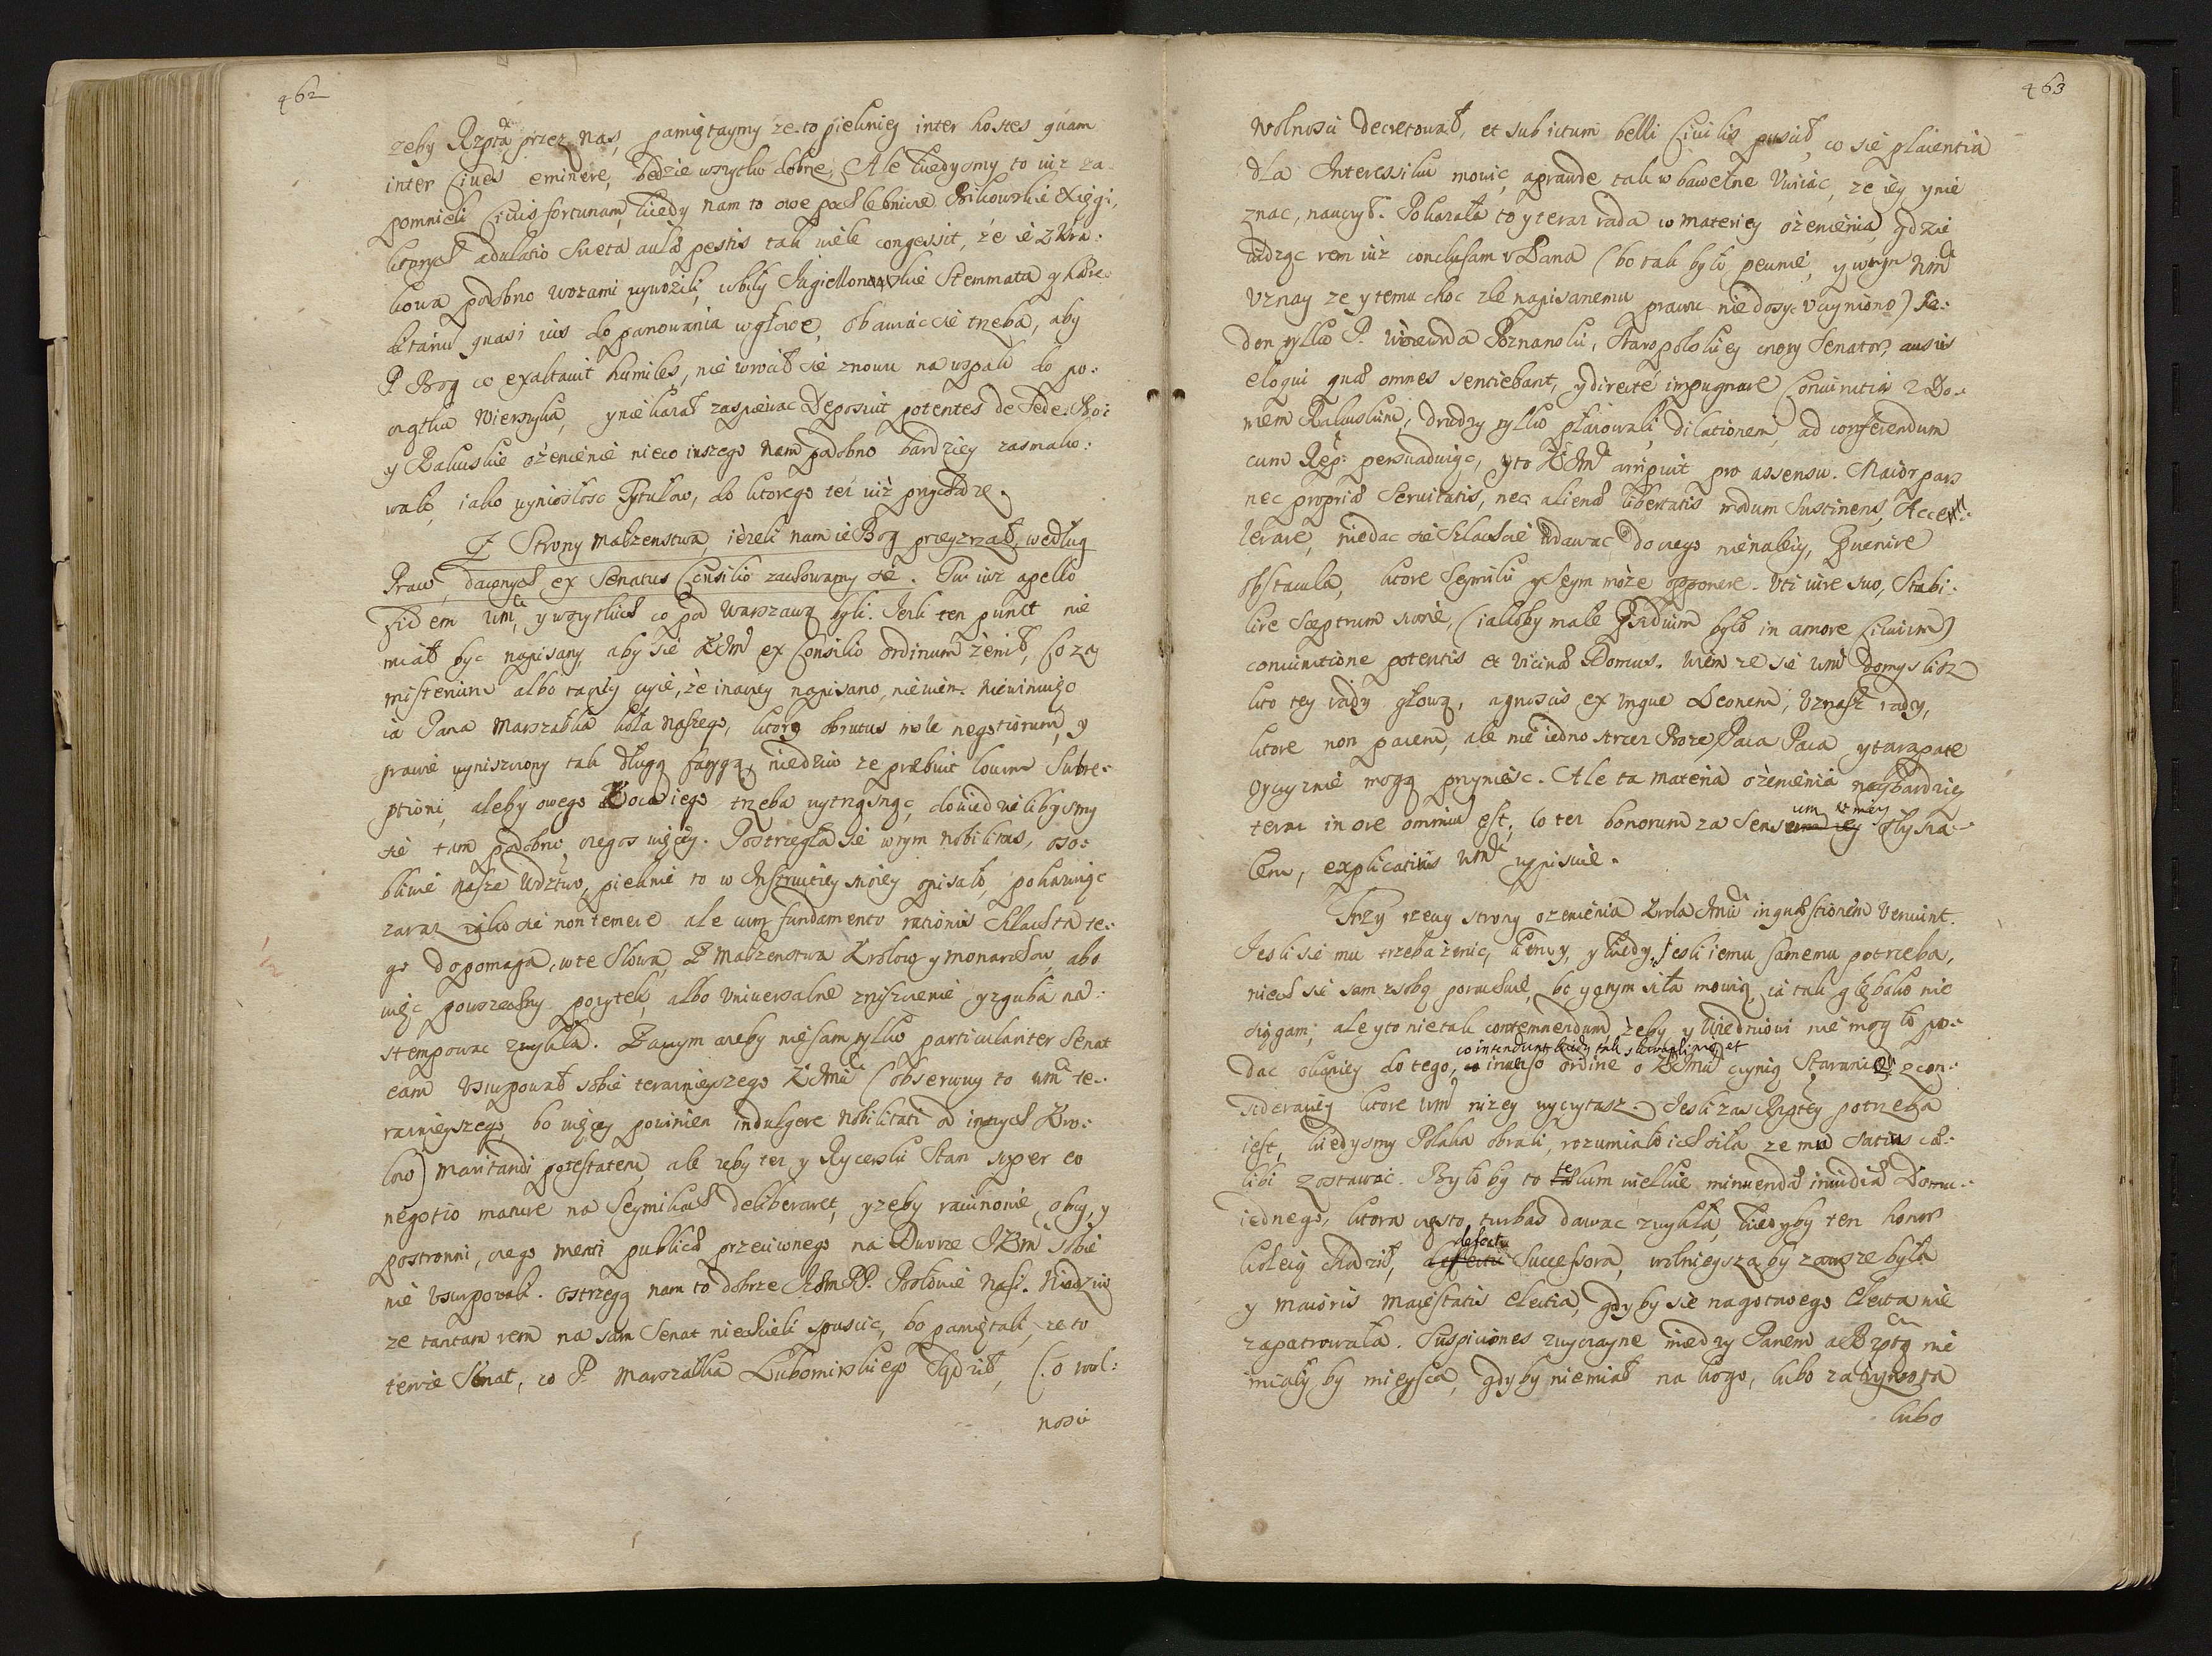 462
zeby Rzptą przez nas, pamiętaymy ze to piekniey inter hostes quam
inter Cives eminere, będzie wszytko dobrze, Ale kiedysmy to iuz za-
pomnieli Civis fortunam, kiedy nam to owe pochlebnicze Xięgi,
ktorych adulatio sueta aulae pestis tak wiele congessit, ze ie z Kra:
kowa podobno wozami wywozili, wbiły Jagiellonskie Stemmata y
quasi ius do panowania w głowę, obawiac sie trzeba, aby
P. Bog co exaltavit humiles, nie wrocił sie znowu na wspak do po:
czątku wierszyka, y nie kazał zaspiewac Deposuit potentes de Sede. Boć
y Rakuskie ożenienie nieco inszego nam podobno bardziey zasmako:
wało, iako wyniosłosc Tytułow, do ktorego tez iuż przychodzę.
Z Strony małzenstwa, ieżeli nam ie Bog przeyzrzał, według
Praw dawnych ex Senatus Consilio zachowamy sie. Tu iuż apello
fidem Wmci, y wszytkich co pod Warszawą byli. Jesli ten punct nie
miał byc napisany, aby sie KJMć ex Consilio Ordinum żenił, Co za
misterium albo czyie, że inaczey napisano, niewiem. Niewinuię
ia Pana Marszałka koła naszego, ktory obrutus mole negotiorum, y
prawie wyniszczony tak długą fatygą, niedziw ze praebuit locum Subre:
ptioni, aleby owego trzeba wytrząsnąc, dowiedzielibysmy
sie tam podobno czegos więcey. Postrzegła sie w tym nobilitas, oso:
bliwie nasze Wdztwo, pieknie to w Instructiey swoiey opisało, pokazuiąc
zaraz iako sie non temere ale cum fundamento rationis Szlachta te:
go dopomaga, w te słowa, Z Małzenstwa Krolow y Monarchow, abo
więc powszechny pozytek, albo Vniversalne zniszczenie y zguba na:
stempowac zwykła. Zaczym aseby nie sam tylko particulariter Senat
eam Vsurpował sobie teraznieyszego KJMci (obserwuy to Wmć te:
raznieyszego, bo więcey powinien indulgere Nobilitati od inszych Kro:
low) maritandi potestatem, ale zeby tez y Rycerski Stan super eo
negotio mature na Seymikach deliberaret, y zeby racunonie, obcy, y
postronni, czego menti publicae przeciwnego na Dworze JKMci sobie
nie vsurpowali. Ostrzegą nam to dobrze JchM PP. Posłowie nasi. Niedziw
ze tantam rem na sam Senat niechcieli spuscic, bo pamiętali, ze to
tenze Senat, co P. Marszałka Lubomirskiego sądził, (o wol:
nosci
463
wolnosci decretował, et sub ictum belli Civilis puscił, co sie placentia
dla Interessiku mowic, a prawde tak w bawełne Vwiiać, ze iey y nie
znac, nauczył. Pokazała to y teraz rada w materiey ożenienia, gdzie
widząc rem iuż conclusam v Pana (bo tak było pewnie, y w tym Wmć
Vznay ze y temu choc zle napisanemu prawu nie dosyc Vczyniono) Je:
den tylko P. Woiewoda Poznanski, Staropolskiey cnoty Senator, ausus
eloqui quae omnes sentiebant, y directe impugnare Coniunctią z Do:
mem Rakuskim, drudzy tylko płacowali, dilationem, ad conferendum
cum Rep: persuaduiąc, y to KJMć arripuit pro assensu. Maior pars
nec propriae Servitutis, nec alienae libertatis modum Sustinens, Acce:
lerare, niedac sie Szlachcie wdawac do czego nienalezy, praevenire
obstacula, ktore Seymiki y Seym może opponere. Vti iure suo, Stabi:
lire Sceptrum swoie, (iakoby male praesidium było in amore Civium)
coniunctione potentis et vicinae Domus. Wiem ze sie Wmć domyslisz
kto tey rady głową, agnoscis ex ungue Leonem, Vznasz rady,
ktore non pacem, ale nie iedno strzez Boze, Paca Paca y tarapate
Oyczyznie mogą przyniesc. Ale ta materia ożenienia naybardziey
teraz in ore omnium est, co tez bonorum za Sensum w niey słysza:
łem, explicatius Wmci wypisuie.
Trzy rzeczy strony ozenienia Krola JMci in quaestionem veniunt.
Jesli sie mu trzeba żenic, z kim, y kiedy. Jesli iemu samemu potrzeba,
niech sie sam z sobą porachuie, bo y o tym siła mowią, ia tak głęboko nie
sięgam; ale y to nie tak contemnendum, żeby y Wiedniowi nie mogło po:
dac okaziey do tego, co intendunt kiedy tak skwapliwie, et inverso ordine o KJMci czynią Starania, z con:
sideraciey ktore Wmć nizey wyczytasz. Jesli zas Rzptey potrzeba
iest, kiedysmy Polaka obrali, rozumiało ich siła ze mu satius cae:
libi zostawac. Byłoby to telum wielkie minuendae invidiae Domu
iednego, ktora często turbas dawac zwykła, kiedyby ten honor
koleią chodził, defectu Successora, wolnieyszaby zawsze była
y maioris maiestatis electia, gdyby sie na gotowego Electa nie
zapatrowała. Suspiciones zwyczayne między Panem a Rzptą nie
miałyby mieysca, gdyby niemiał na kogo, lubo za zywota
lubo